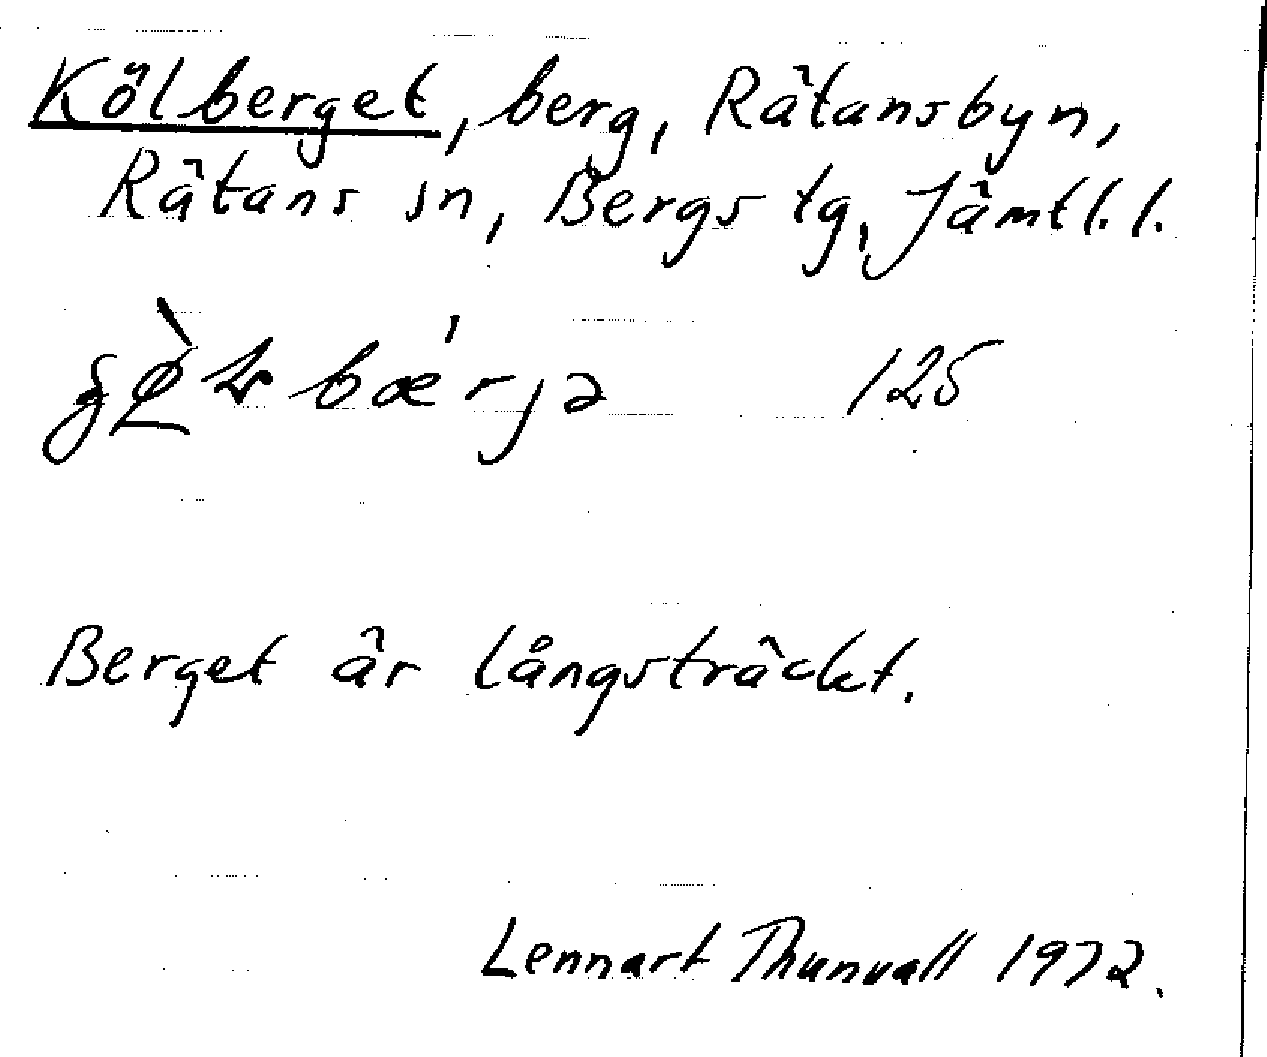 Kölberget, berg, Rätansbyn,
Rätans sn, Bergs tg, Jämtl. l.
125
Berget är långsträckt.
Lennart Thunvall 1972.